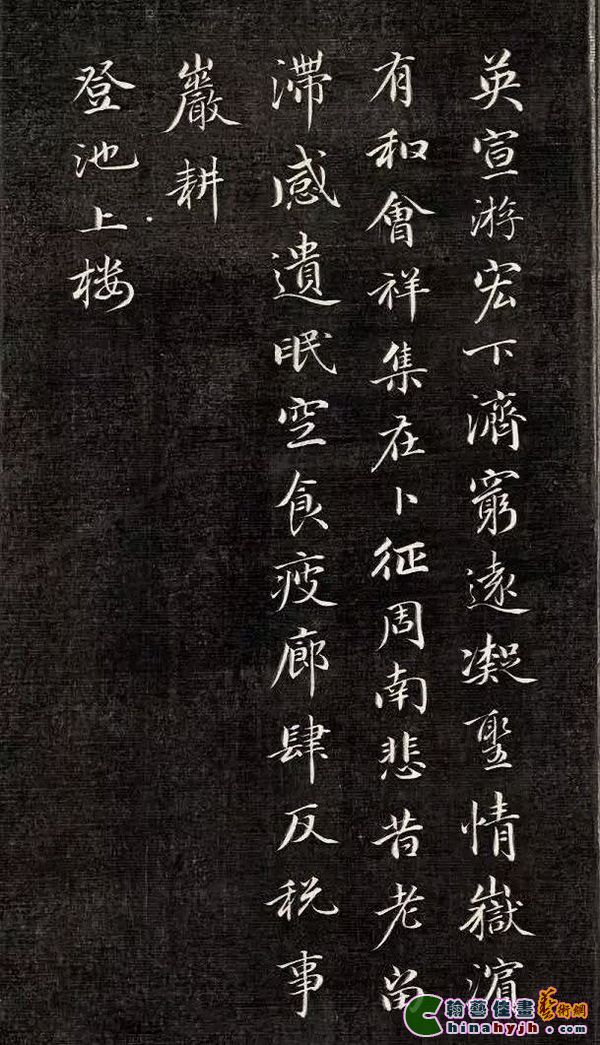 英宣游宏下濟窮遠凝聖情嶽濵
有和會祥集在卜征周南悲昔老留
滯感遺眠空食疲廊肆反税事
巖耕
登池上楼
翰藝佳畫藝術網
Chinahyjh.com